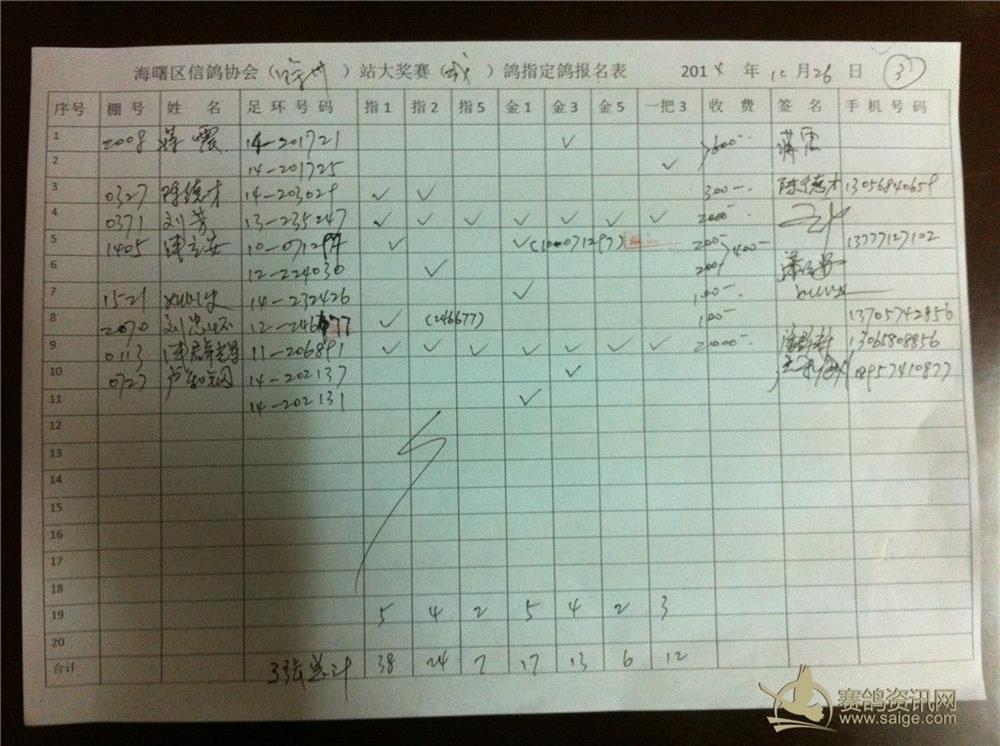 海曙区信鸽协会（徐州）站大奖赛（成）鸽指定鸽报名表 2014年10月26日 ③
序号 棚号 姓名 足环号码 指1 指2 指5 金1 金3 金5 一把3 收费 签名 手机号码
1 2008 蒋震 14-201721 ✓ 600- 蒋震
2 14-201725 ✓
3 0327 陈德才 14-203029 ✓ ✓ 300- 陈德才 13056840659
4 0371 刘芳 13-235247 ✓ ✓ ✓ ✓ ✓ ✓ ✓ 2000-
5 1405 10-071297 ✓ ✓ (10-071297) 200- 400- 13777127102
6 12-224030 ✓ 200
7 1521 14-232426 ✓ 100-
8 2070 刘忠 12-246677 ✓ (246677) 100- 13705742856
9 0113 11-206891 ✓ ✓ ✓ ✓ ✓ ✓ ✓ 2000- 13065808856
10 0727 卢 14-202137 ✓ 18957410877
11 14-202131 ✓
12
13
14
15
16
17
18
19 5 4 2 5 4 2 3
20
合计 3张总计 38 24 7 17 13 6 12
赛鸽资讯网
www.saige.com